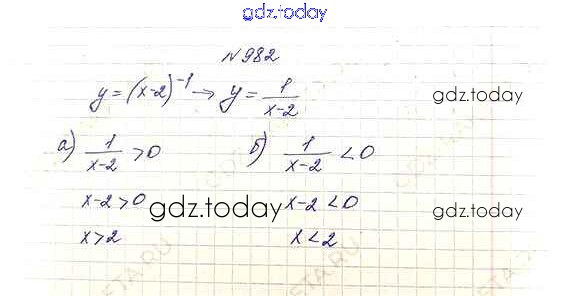 gdz.today
N982
y=(x-2)⁻¹ → y = 1/(x-2)
gdz.today
а) 1/(x-2) >0 б) 1/(x-2) <0
x-2>0 gdz.today x-2<0 gdz.today
x>2 x<2